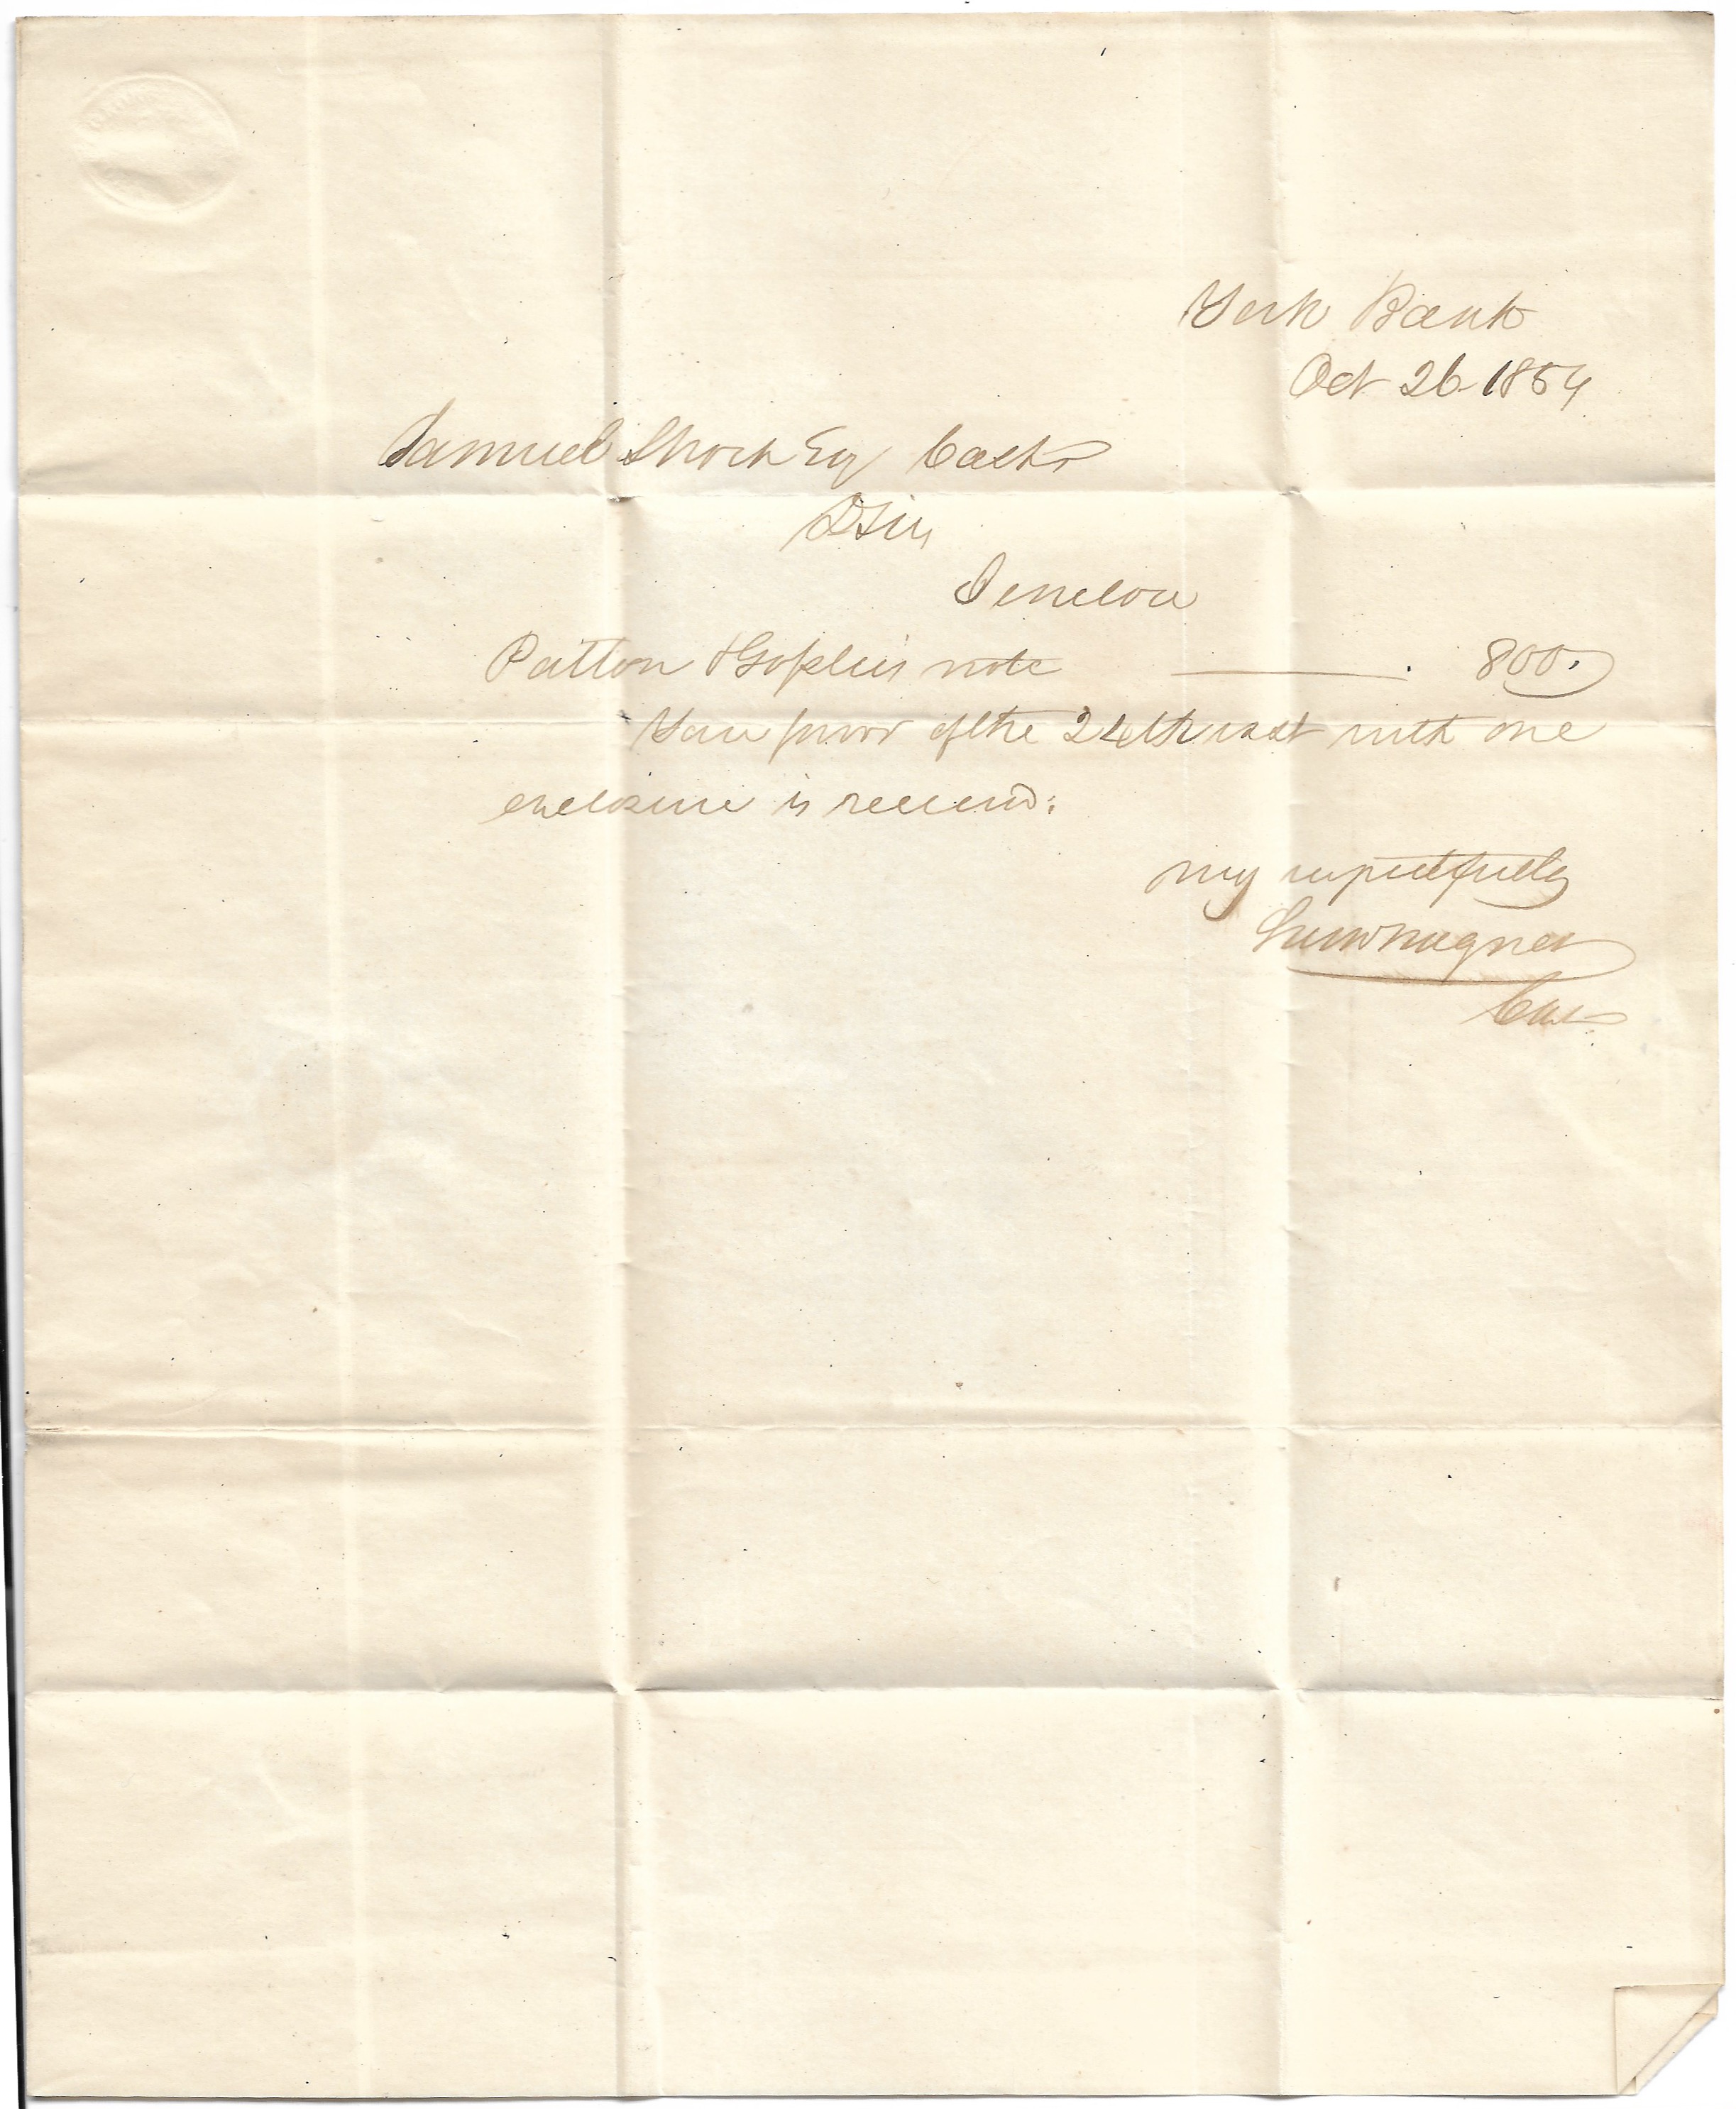 York Bank
Oct 26 1854
Samuel Shoch Esq Cashr
DSir,
I enclose
Patton & note 800.
Your favor of the 24th inst with one
enclosure is received.
Very respectfully
Cas